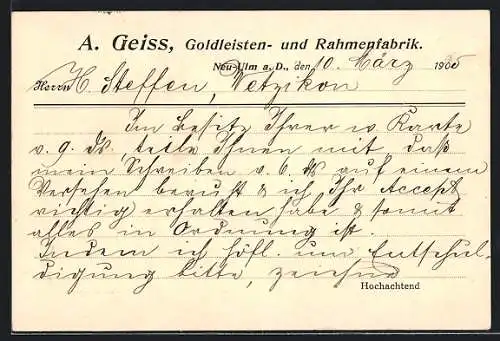 A. Geiss, Goldleisten- und Rahmenfabrik.
Neu-Ulm a. D., den 10. März 1905
Herrn H. Steffen, Wetzikon
Im Besitz Ihrer w. Karte
v. 9. ds, teile Ihnen mit, daß
mein Schreiben v. 6. ds auf einem
Versehen beruht & ich Ihr Accept
richtig erhalten habe & somit
alles in Ordnung ist.
Indem ich höfl. um Entschul-
digung bitte, zeichne
Hochachtend